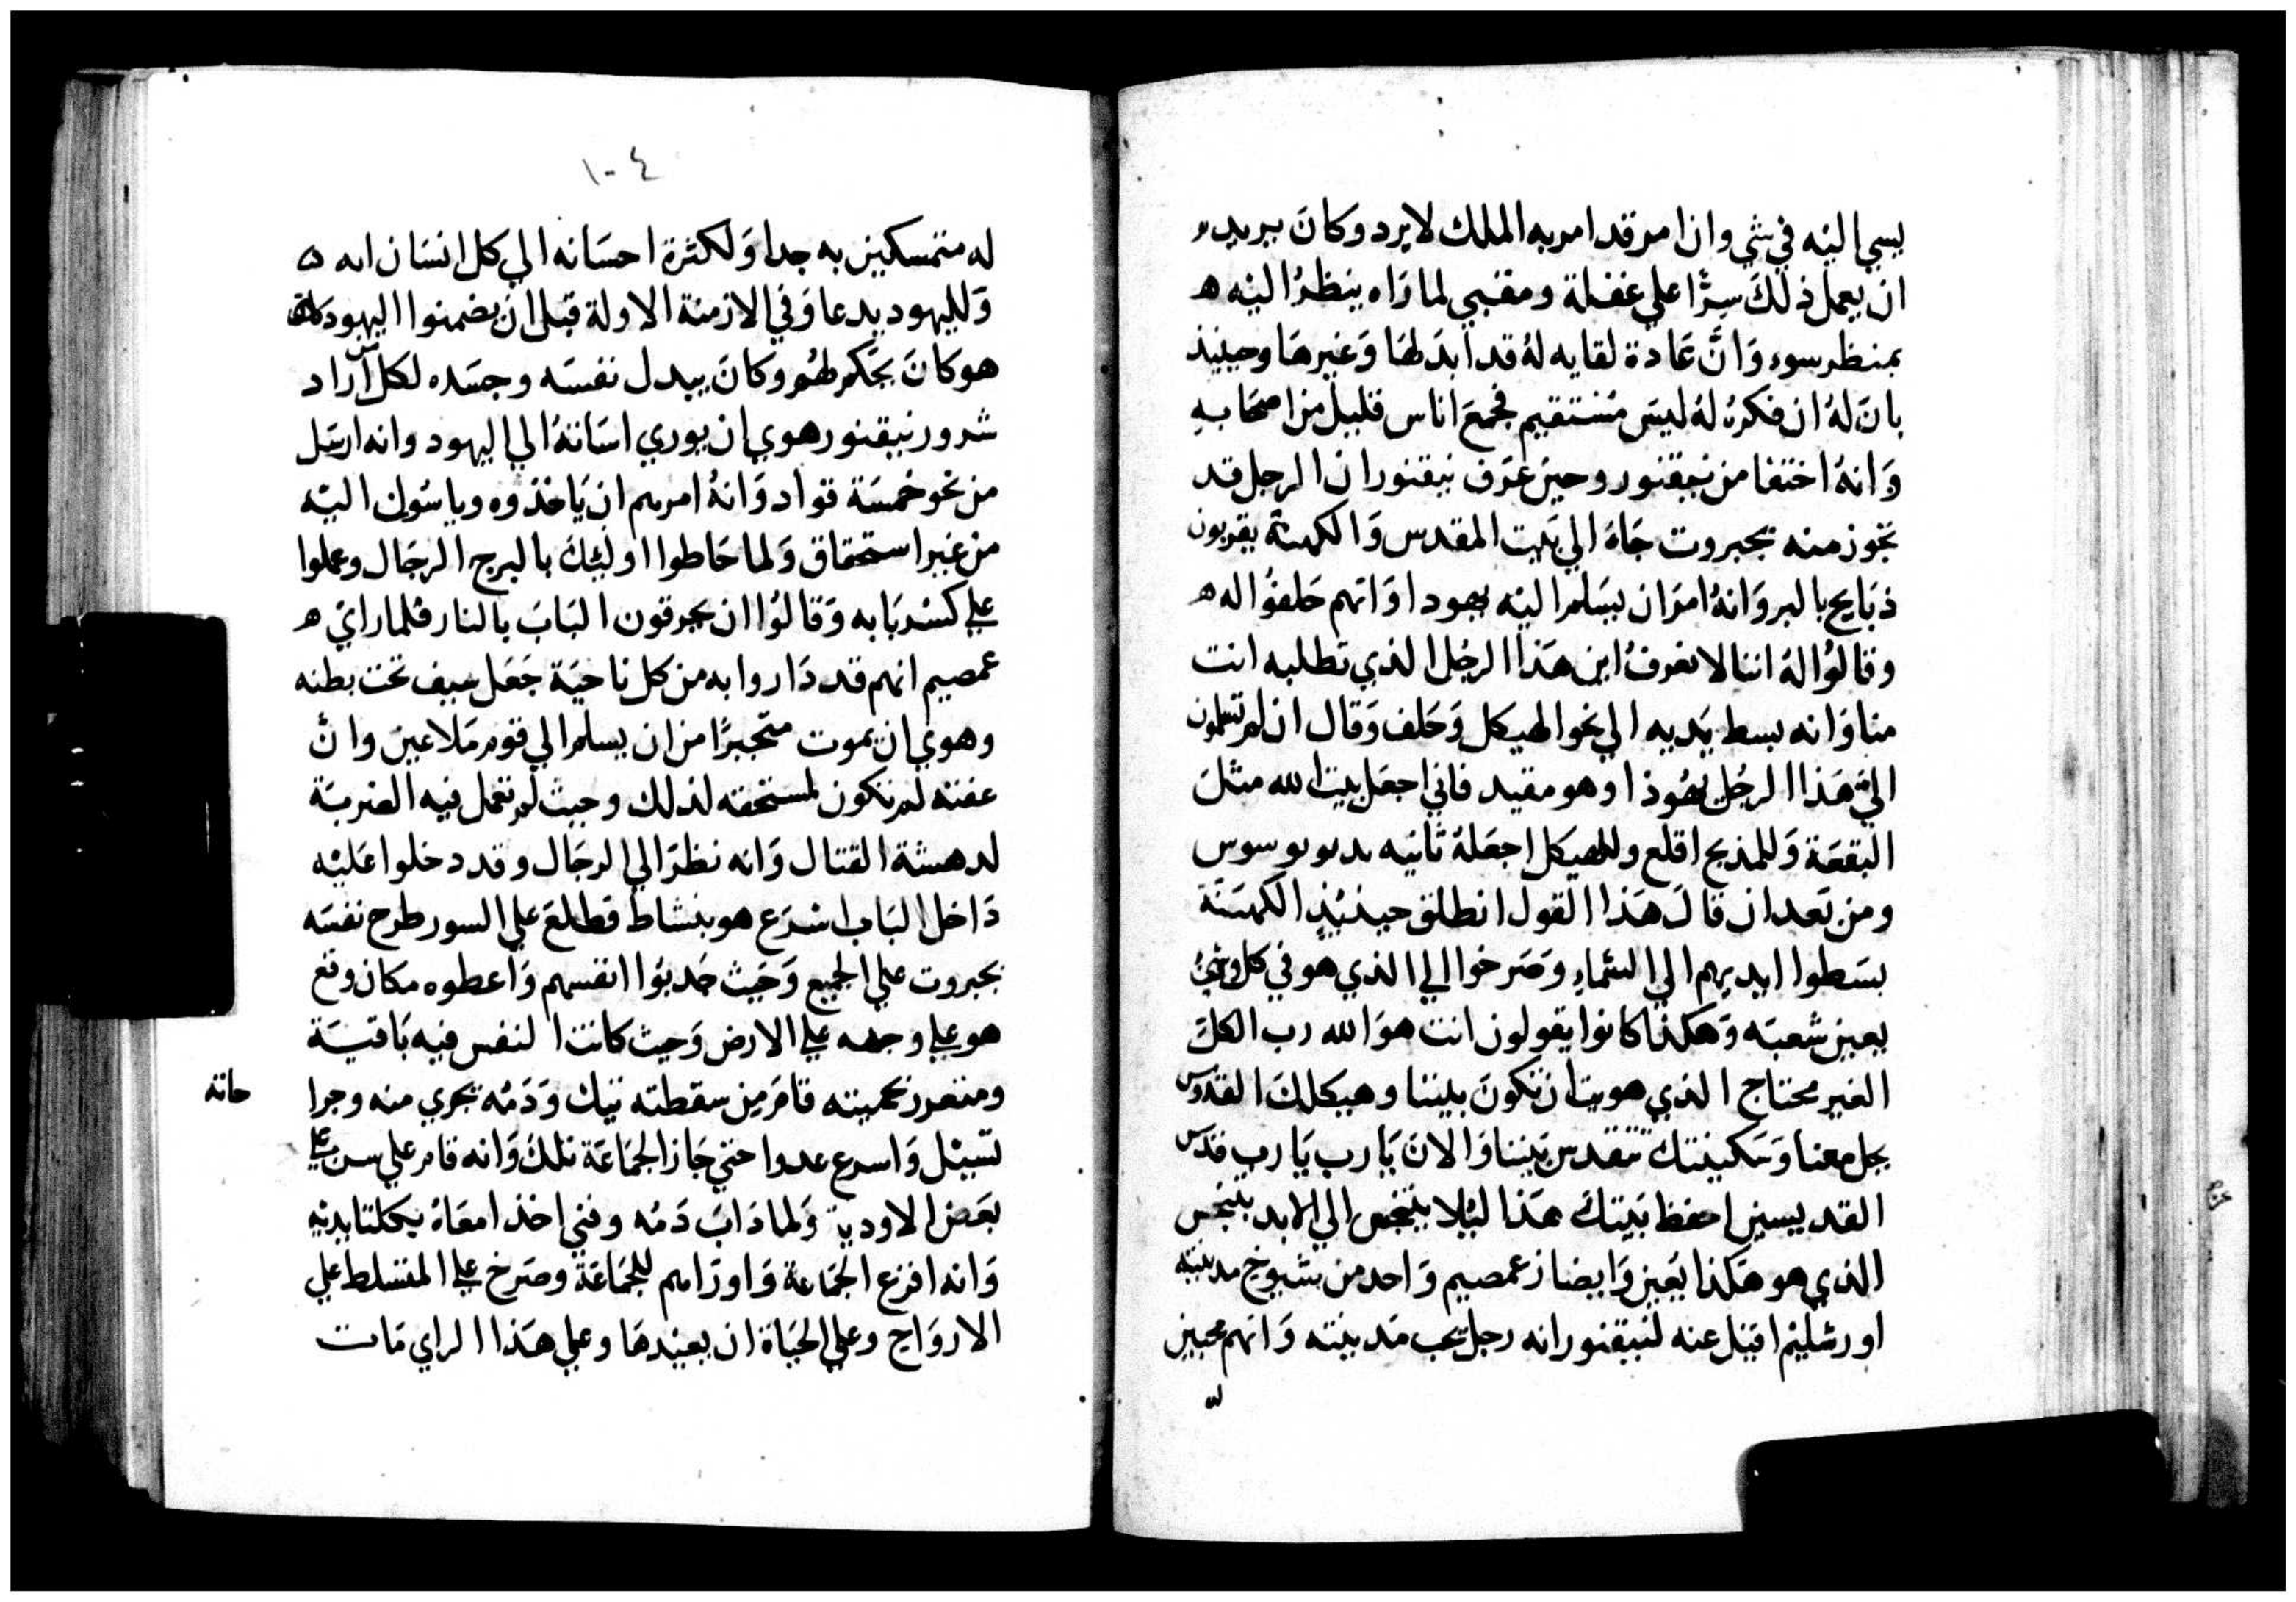 يسي اليه في شي وان امر قد امر به الملك لا يرد وكان يريد
ان يعمل ذلك سرًا علي غفلة ومقبي لما رَاه ينظرُ اليه ه
بمنظر سوء وَانَّ عَادة لقايه لهُ قد ابدَلهَا وَغيرهَا وحينيذ
بانَ لهُ ان فكرهُ لهُ ليسَ مُستقيم فجمعَ اناس قليل من اصحَابهِ
وَانهُ اختفا من نيقنور وحين عَرف نيقنور ان الرجل قد
تجوز منه بجبروت جَاءَ الي بَيت المقدس وَالكهنة يقربون
ذبَايح بالبر وَانهُ امرَ ان يسَلمرا ليه يهودا وَانهم حَلفوُا له ه
وقالوُا لهُ اننا لا نعرفُ اين هَذا الرجُل الذي تطلبه انت
منا وَانه بسط يَديه الي نحو الهيكل وَحَلف وَقال ان لم تسلمون
اليَّ هَذا الرجُل يَهُوذا وهو مقيد فاني اجعَل بيت الله مثلَ
البقعَة وَللمذبح اقلع وللهيكل اجعَلهُ ثانيه
ومن بَعد ان قالَ هَذا القول انطلق حينئيذٍ الكهَنَة
بسَطوا ايديهم الي السَّماءِ وَصَرخوا الي الذي هو في كل وقتٍ
يعين شعبَه وَهكذا كانوا يقولون انت هوَ الله رب الكلّ
الغير محتاج الذي هويت ان تكونَ بيننا وهيكلكَ القدوس
يحل معنا وَسَكينتك تتقدس بَيننا وَالانَ يَا رب يَا رب قدَّس
القديسين احفظ بَيتكَ هَذا ليُلا يتنجس الي الابد بتنجس
الذي هو هَكذا يَعين وَايضا زعمصيم وَاحد من شيوخ مدينته
اورشليم اقيل عنه لنيقنور انه رجل يحب مَدينته وَانهم محبين
١٠٤
له متمسكين به جدا وَلكثرة احسَانه الي كل انسَان اله
وَلليهود يدعا وَفي الازمنة الاولة قبل ان يضمنوا اليهود
هو كانَ يحَكم لهُم وكانَ يبدل نفسَه وجسَده لكل اراد
شرور نيقنور هوي ان يوري اسَاتهُ الي اليهود وانه ارسَل
من نحو خمسَة قواد وَانهُ امرهم ان يَاخذوه وياسوُن اليه
من غير استحقاق وَلما حَاطوا اوليكَ بالبرج الرجَال وعملوا
علي كسْر بَابه وَقالوُا ان يحرقون البَابَ بالنار فلما راي ه
عمصيم انهم قد دَاروا به من كل ناحيَة جَعَل سيف تحت بطنه
وهوي ان يموت متجبرًا من ان يسلمرا لي قوم مَلاعين وانَّ
عفته لم تكون لمستحقته لذلك وحيث لم تعمل فيه الضربَة
لدهشة القتال وَانه نظرَ الي الرجَال وقد دخلوا عَليْه
دَاخل البَاب اسْرَع هو بنشاط فطلعَ علي السور طرح نفسَه
بجبروت علي الجميع وَحَيث جَدبوُا انفسهم وَاعطوه مكان وقع
هو علي وجهه علي الارض وَحيث كانت النفس فيه بَاقيَة
ومتعزر بحميته قامَ من سقطته تيك وَدَمُه تجري منه وجرا
حاته
تسَيْل وَاسرع عدوا حتي جَاز الجمَاعَة تلكَ وَانه قام علي سن علي
بعَض الاودية وَلما دَابَ دَمُه وفني اخذ امعَاهُ بكلتا يديْه
وَانه افزع الجمَاعَة وَاوراهم للجَمَاعَة وصَرخ علي المتسَلط علي
الاروَاح وعلي الحيَاة ان يعيْدهَا وعلي هَذا الراي مَات